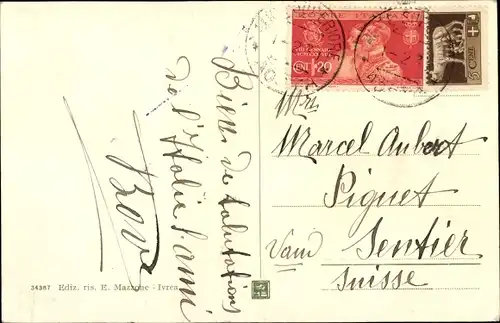 Bien de salutations
de l'Italie l'ami
Bova
Mr.
Marcel Aubert
Piguet
Sentier
Vaud
Suisse
CENT. 20
5 Cent
34367 Ediz. ris. E. Mazzone - Ivrea